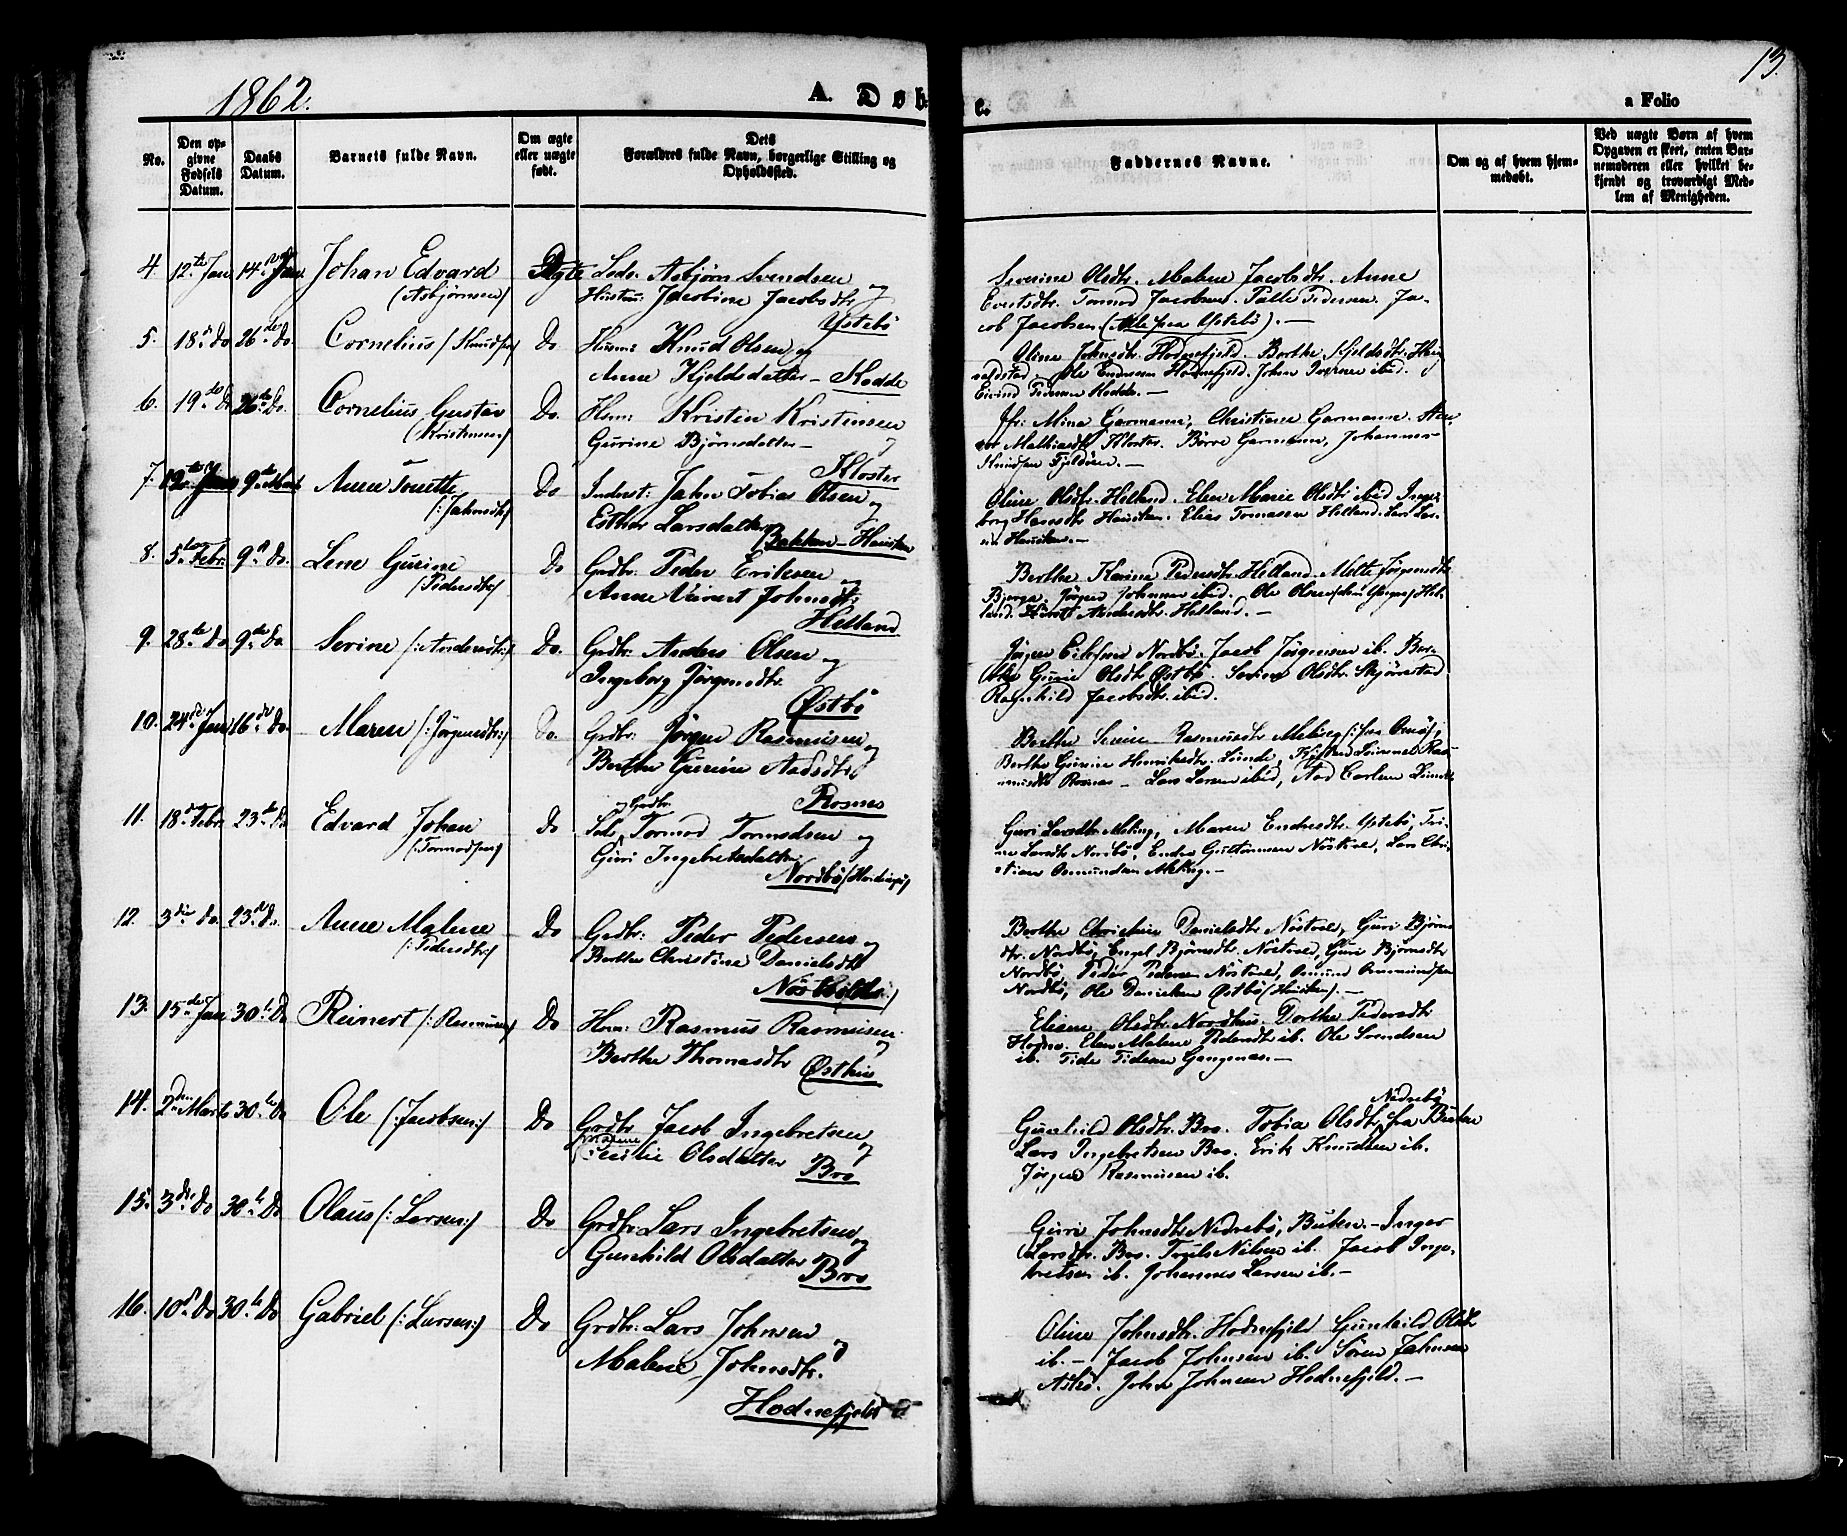 1862.
A. Döb
e.
a Folio
13.
No.
Den op-
givne
Fødsels
Datum.
Daabs
Datum.
Barnets fulde Navn.
Om ægte
eller uægte
født.
Dets
Forældres fulde Navn, borgerlige Stilling og
Opholdssted.
Faddernes Navne.
Om og af hvem hjem-
medøbt.
Ved uægte Børn af hvem
Opgaven er skeet, enten Bar-
nemoderen eller hvilket be-
kjendt og troværdigt Med-
lem af Menigheden.
4. 12te Jan 14de Jan. Johan Edvard Ægte Lods. Asbjørn Svendsen og
(Asbjørnsen) Hustru: Jacobine Jacobsdtr
Ystebö
Severine Olsdtr. Malene Jacobsdtr. Anne
Evertsdtr. Tormod Jacobsen. Palle Pedersen. Ja-
cob Jacobsen (Alle fra Ystebö). —
5. 18de do 26de do. Cornelius /: Knudsen Do Husm: Knud Olsen og
Anne Kjeldsdatter — Hodde
Oline Johnsdtr. Hodnefjeld. Berthe Kjeldsdtr. Har
valdstad. Ole Endresen Hodnefjeld. John Iversen ibid.
Eivind Pedersen Hodde. —
6. 19de do 26de do. Cornelius Gustav Do. Husm: Kristen Kristensen
(Kristensen) og
Gurine Björnsdatter —
Kloster
Jfr: Mina Garmann, Christiane Garmann.
Mathiasdtr Kloster. Börre Garmann, Johannes
Knudsen Fjeldöen. —
7. 12te Jan 9de Marts Anne Tonette Do Inderst: Jahn Tobias Olsen
(: Jahnsdtr) og
Esther Larsdatter
Bakken — Hausken
Oline Olsdtr. Helland. Elen Marie Olsdtr ibid Inge-
borg Hansdtr Hausken. Elias Tomassen Helland. Lars Lar-
sen Hausken. —
8. 5te Febr. 9de do. Lene Gurine Do Grdbr. Peder Eriksen
(Pedersdtr) og
Anne Johnsdtr:
Helland
Berthe Karine Pedersdtr. Helland. Mette Jörgensdtr
Bjerga. Jörgen Johnsen ibid. Ole Olsen Hel-
land. Andersdtr. Helland. —
9. 28de do 9de do Serine /: Andersdtr:) Do. Grdbr: Anders Olsen og
Ingeborg Jörgensdtr.
Östbö
Jörgen Nordbö. Jacob Jörgensen ib. Ber-
the Gurine Olsdtr Östbö. Olsdtr. Skjörestad
Ragnhild Jacobsdtr. ibid.
10. 24de Jan 16de do. Maren /: Jörgensdtr:) Do. Grdbr: Jörgen Rasmusen
og
Berthe Gurine Aadsdtr
Rosnes
Berthe Serine Rasmusdtr Meling /: fra Omö)
Berthe Gurine Henriksdtr. Lunde, Ras-
musdtr Rosnes — Lars Larsen ibid, Aad Carlsen Lunde
11. 18de Febr. 23de do Edvard Johan Do og Grdbr.
(: Tormodsen) Tormod Tormodsen og
Guri Ingebretsdatter
Nordbö
Guri Larsdtr. Meling, Maren Endresdtr. Ystebö, Tri-
ne Larsdtr Nordbö, Endre Nöstvol, Lars Chri-
stian Osmundsen Meling. —
12. 3die do. 23de do. Anne Malene Do Grdbr: Peder Pedersen
(: Pedersdtr) og
Berthe Christine Danielsdtr
Berthe Danielsdtr Nöstvol, Guri Björns
dtr. Nordbö, Engel Björnsdtr. Nöstvol, Guri Björnsdtr
Nordbö, Peder Pedersen Nöstvol, Osmund Osmundsen
Nordbö, Ole Danielsen Östbö (Hausken). —
13. 15de Jan 30te do Reinert /: Rasmusen) Do Husm: Rasmus Rasmusen
og
Berthe Thomasdtr
Östhus
Eliane Olsdtr. Nordhus. Dorthe Pedersdtr
Hogne. Elen Malene Pedersdtr ib. Ole Svendsen
ib. Peder Pedersen Gangenæs. —
14. 2den Marts 30te do Ole /: Jacobsen:) Do Grdbr Jacob Ingebretsen
Malene og
Cecilie Olsdatter
Bro
Nedrebö
Gunhild Olsdtr. Bro. Tobia Olsdtr. fra Buken
Lars Ingebretsen Bro. Erik Knudsen ib.
Jörgen Rasmusen ib.
15. 3de do 30te do Olaus /: Larsen:) Do Grdbr: Lars Ingebretsen
og
Gunhild Olsdatter
Bro
Guri Johnsdtr. Nedrebö, Buken. — Inger
Larsdtr. Bro. Nilsen ib. Jacob Inge-
bretsen ib. Johannes Larsen ib. —
16. 10de do 30te do Gabriel /: Larsen:) Do Grdbr: Lars Johnsen
og
Malene Johnsdtr.
Hodnefjeld
Oline Johnsdtr. Hodnefjeld Gunhild Olsdtr
ib. — Jacob Johnsen ib. Sören Jahnsen
Askö. John Johnsen Hodnefjeld. —